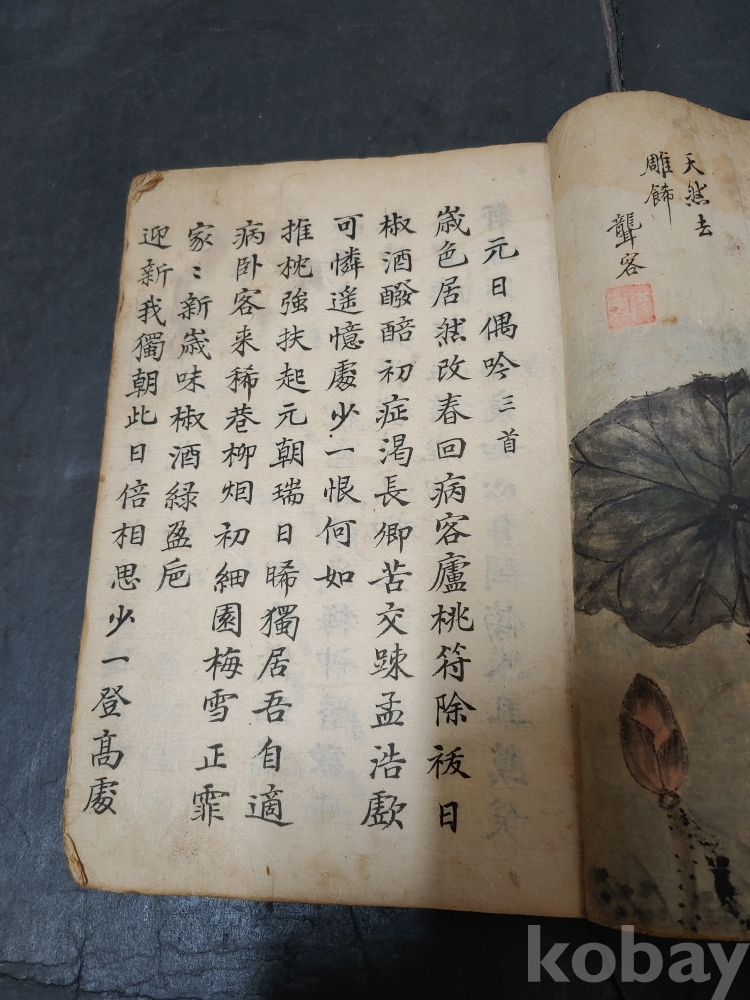 天然去
雕餙
元日偶吟三首
歲色居然改春回病客廬桃符除祓日
椒酒醱醅初症渴長卿苦交踈孟浩歔
可憐遥憶處少一恨何如
推枕強扶起元朝瑞日晞獨居吾自適
病卧客来稀巷柳烟初細園梅雪正霏
家〻新歲味椒酒綠盈巵
迎新我獨朝此日倍相思少一登高處
kobay